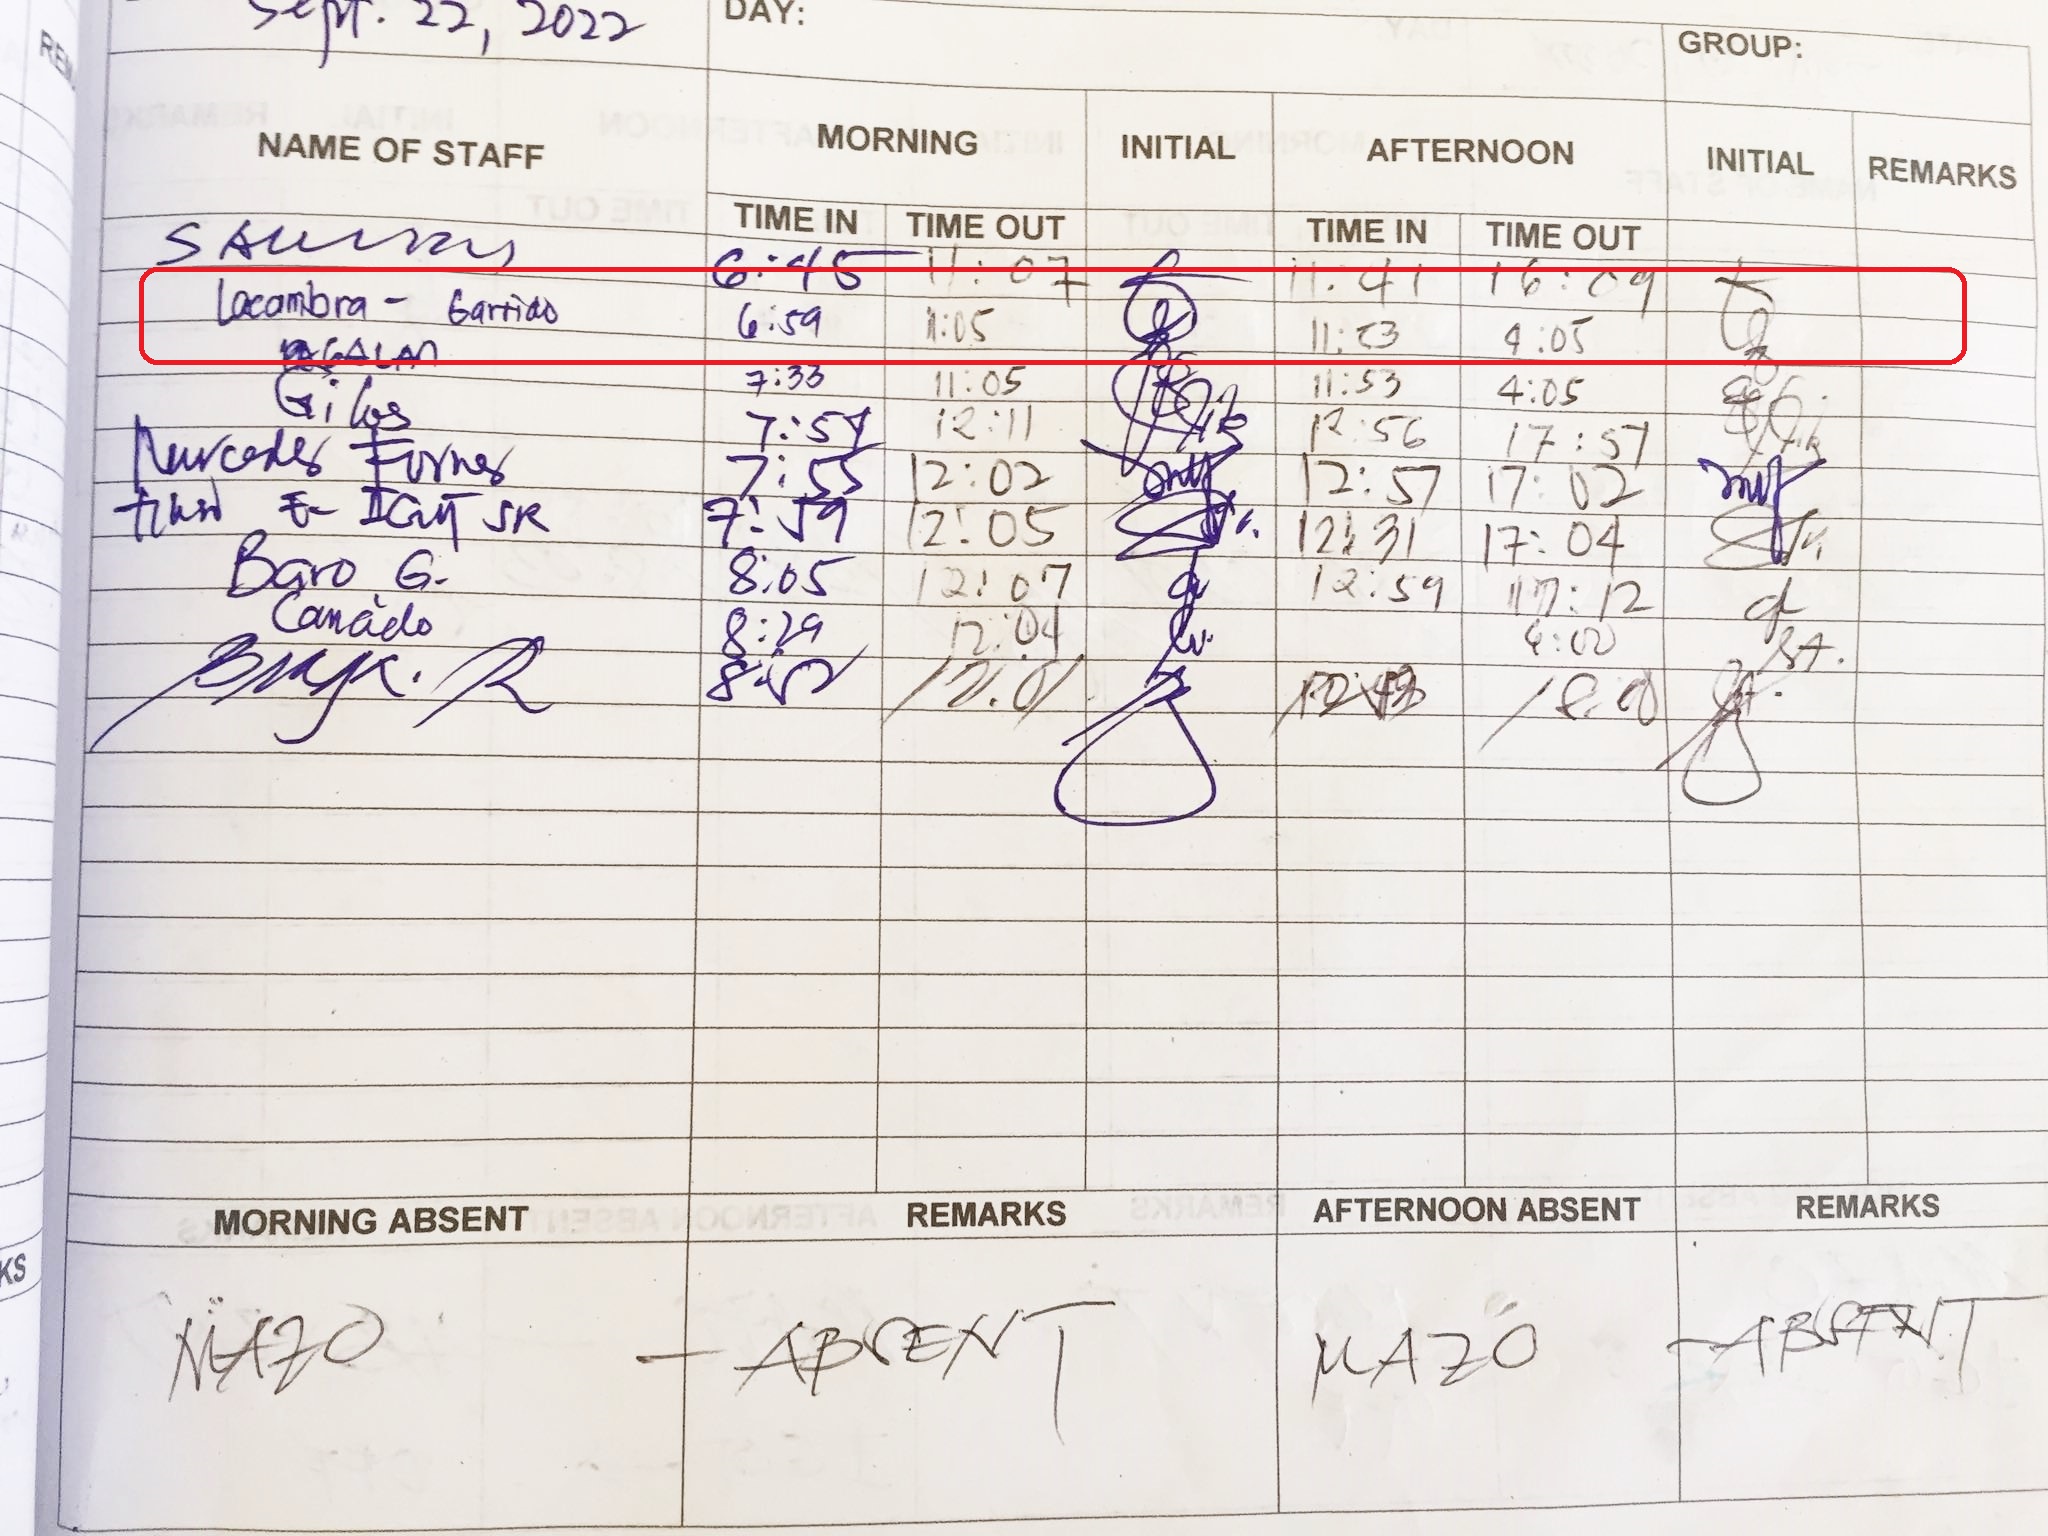 Sept. 22, 2022 DAY: GROUP:
NAME OF STAFF MORNING INITIAL AFTERNOON INITIAL REMARKS
TIME IN TIME OUT TIME IN TIME OUT
6:45 11:07 11:41 16:09
Lacambra - Garrido 6:59 11:05 11:53 4:05
PAGALAN 7:33 11:05 11:53 4:05
Gilos 7:57 12:11 12:56 17:57
Mercedes Fornes 7:55 12:02 12:57 17:02
7:59 12:05 12:31 17:04
Baro G. 8:05 12:07 12:59 17:12
Canado 8:29 12:04 4:00
MORNING ABSENT REMARKS AFTERNOON ABSENT REMARKS
MAZO - ABSENT MAZO - ABSENT